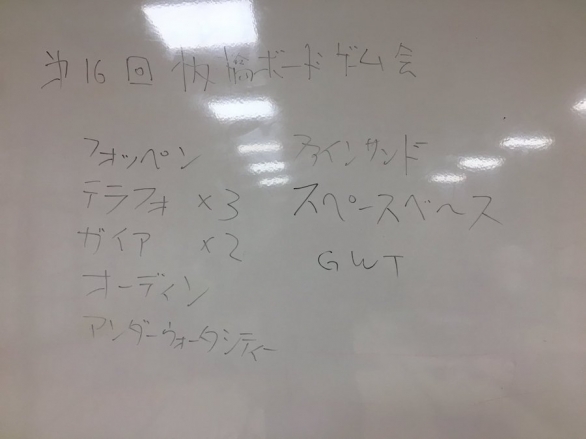 第16回 板橋ボードゲーム会
フォッペン
テラフォ ×3
ガイア ×2
オーディン
アンダーウォーターシティー
ファインサンド
スペースベース
GWT